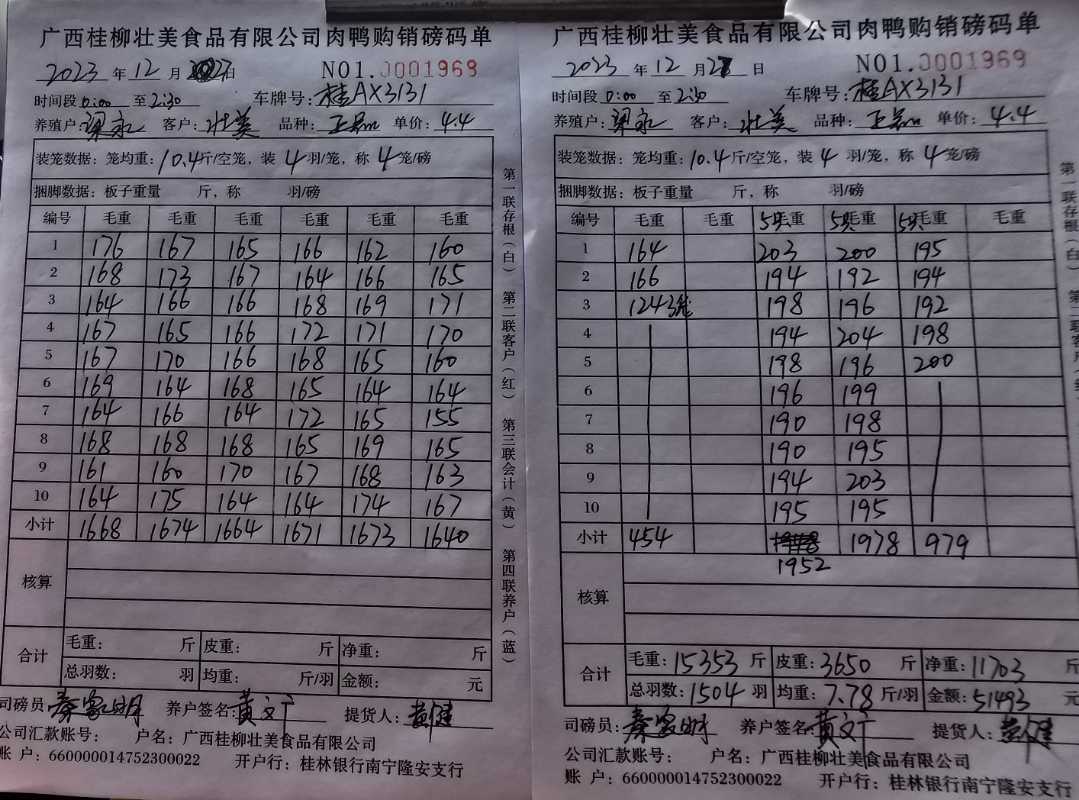 广西桂柳壮美食品有限公司肉鸭购销磅码单
2023 年 12 月 27 日 NO1.0001969
时间段 0:00 至 2:30 车牌号：桂AX3131
养殖户：梁永 客户：壮美 品种： 单价：4.4
装笼数据：笼均重：10.4斤/空笼，装 4 羽/笼，称 4 笼/磅
捆脚数据：板子重量 斤，称 羽/磅
编号 毛重 毛重 毛重 毛重 毛重 毛重
1 176 167 165 166 162 160
2 168 173 167 164 166 165
3 164 166 166 168 169 171
4 167 165 166 172 171 170
5 167 170 166 168 165 160
6 169 164 168 165 164 164
7 164 166 164 172 165 155
8 168 168 168 165 169 165
9 161 160 170 167 168 163
10 164 175 164 164 174 167
小计 1668 1674 1664 1671 1673 1640
核算
合计 毛重： 斤 皮重： 斤 净重： 斤
总羽数： 羽 均重： 斤/羽 金额： 元
司磅员 秦家明 养户签名：黄文 提货人：黄健
公司汇款账号： 户名：广西桂柳壮美食品有限公司
账 户：660000014752300022 开户行：桂林银行南宁隆安支行
第一联存根（白） 第二联客户（红） 第三联会计（黄） 第四联养户（蓝）
广西桂柳壮美食品有限公司肉鸭购销磅码单
2023 年 12 月 27 日 NO1.0001969
时间段 0:00 至 2:30 车牌号：桂AX3131
养殖户：梁永 客户：壮美 品种： 单价：4.4
装笼数据：笼均重：10.4斤/空笼，装 4 羽/笼，称 4 笼/磅
捆脚数据：板子重量 斤，称 羽/磅
编号 毛重 毛重 5只毛重 5只毛重 5只毛重 毛重
1 164 203 200 195
2 166 194 192 194
3 124 3笼 198 196 192
4 194 204 198
5 198 196 200
6 196 199
7 190 198
8 190 195
9 194 203
10 195 195
小计 454 1978 979
1952
核算
合计 毛重：15353 斤 皮重：3650 斤 净重：11703 斤
总羽数：1504 羽 均重：7.78 斤/羽 金额：51493 元
司磅员：秦家明 养户签名 黄文 提货人：黄健
公司汇款账号： 户名：广西桂柳壮美食品有限公司
账 户：660000014752300022 开户行：桂林银行南宁隆安支行
第一联存根（白） 第二联客户（红